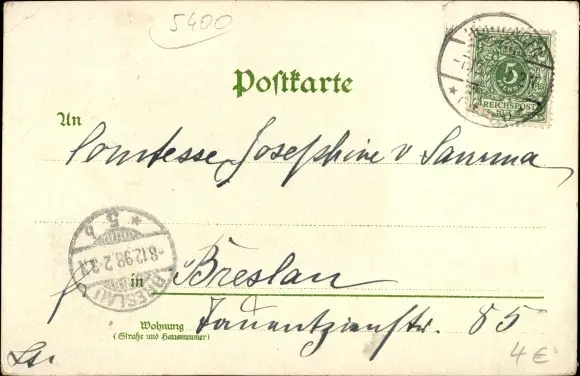 5400
5
REICHSPOST
Postkarte
An
Comtesse Josephine v Saurma
5 b
8.12.98.2-3N
BRESLAU
in Breslau
Wohnung
(Straße und Hausnummer)
Tauentzienstr. 85
4 €